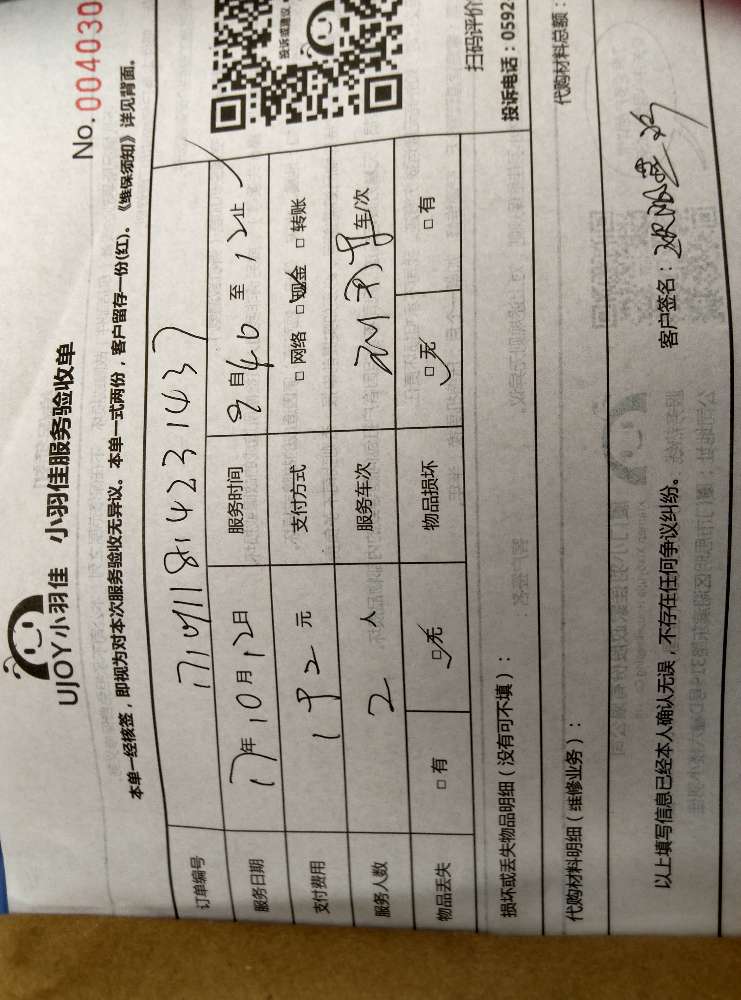 UJOY小羽佳 小羽佳服务验收单
No. 004030
本单一经核签，即视为对本次服务验收无异议。本单一式两份，客户留存一份(红)。《维保须知》详见背面。
订单编号
服务日期 17年10月12日 服务时间 自 至12止
支付费用 192元 支付方式 □网络 □现金 □转账
服务人数 2人 服务车次 车/次
物品丢失 □有 □无 物品损坏 □无 □有
投诉或建议
扫码评价
投诉电话：0592
损坏或丢失物品明细（没有可不填）：
代购材料明细（维修业务）：
代购材料总额：
以上填写信息已经本人确认无误，不存在任何争议纠纷。
客户签名：